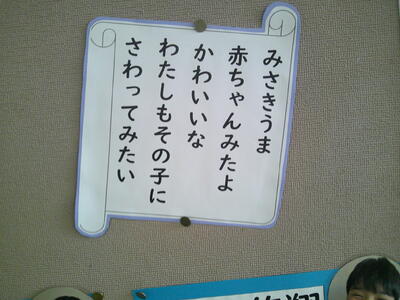 みさきうま
赤ちゃんみたよ
かわいいな
わたしもその子に
さわってみたい